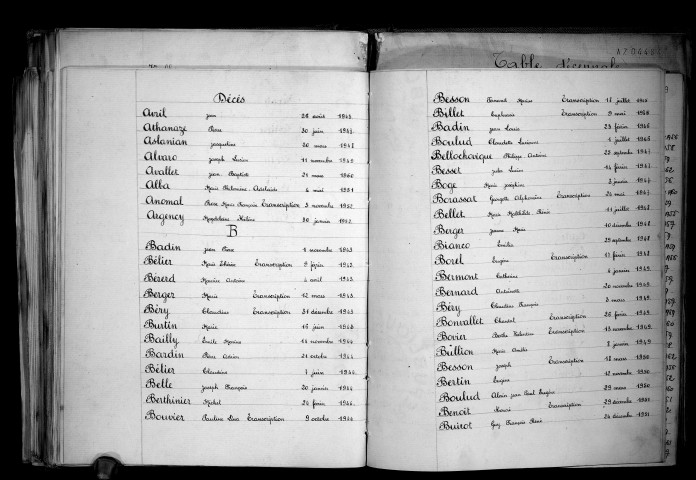 Décès
Avril Jean 28 août 1943
Athanaze Pierre 20 juin 1947
Aslanian Jacqueline 20 mars 1948
Alvaro Joseph Lucien 11 novembre 1949
Avallet Jean Baptiste 21 mars 1950
Alba Marie Philomène Adélaïde 4 mai 1951
Anomal Pierre Marie François Transcription 3 novembre 1952
Argency Magdeleine Hélène 30 janvier 1952
B
Badin Jean Pierre 1 novembre 1943
Bélier Marie Transcription 9 février 1943
Bérerd Maurice Antoine 4 avril 1943
Berger Marie Transcription 12 mars 1943
Béry Claudine Transcription 31 décembre 1943
Burtin Marie 15 juin 1943
Bailly Emile Marius 14 novembre 1944
Bardin Pierre Adrien 21 octobre 1944
Bélier Claudius 7 juin 1944
Belle Joseph François 20 janvier 1944
Berthinier Michel 24 février 1946
Bouvier Pauline Lina Transcription 9 octobre 1944
Table décennale
Besson Transcription 18 juillet 1945
Billet Euphrasie Transcription 9 mai 1945
Badin Jean Louis 23 février 1946
Boulud Claudette Lucienne 1 juillet 1946
Bellochovique Philippe Antoine 22 septembre 1947
Besset Jules Lucien 14 février 1947
Boge Marie Joséphine 2 janvier 1947
Borassat Georgette Alphonsine Transcription 24 mai 1947
Bellet Marie Mathilde 11 juillet 1948
Berger Jeanne Marie 10 décembre 1948
Bianco Emilia 29 septembre 1948
Borel Eugène Transcription 17 février 1948
Bermont Catherine 4 janvier 1949
Bernard Antoinette 20 novembre 1949
Béry Claudius François 3 mars 1949
Bonvallet Transcription 26 février 1949
Bovier Berthe Valentine Transcription 13 novembre 1949
Bullion Marie Amélie 2 janvier 1949
Besson Joseph Transcription 18 mars 1950
Bertin Eugène 12 novembre 1950
Boulud Alain Jean Paul Eugène 29 mars 1950
Benoit Henri Transcription 29 décembre 1951
Buirot Guy François René 24 décembre 1951